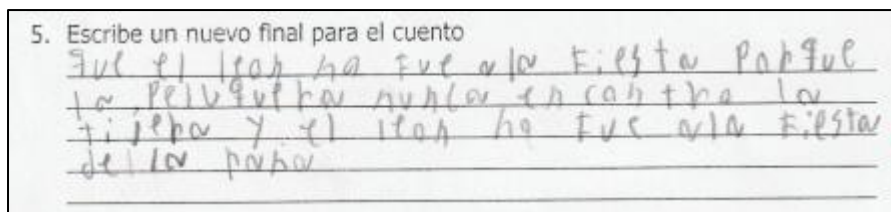 5. Escribe un nuevo final para el cuento
que el leon no fue a la fiesta porque
la peluquera nunca encontro la
tijera y el leon no fue a la fiesta
de la rana